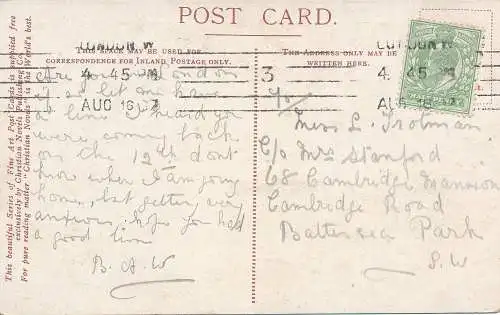 POST CARD.
THIS SPACE MAY BE USED FOR
CORRESPONDENCE FOR INLAND POSTAGE ONLY.
THE ADDRESS ONLY MAY BE
WRITTEN HERE.
This beautiful Series of Fine Art Post Cards is supplied free
exclusively by Christian Novels Publishing Co.
For pure reading matter "Christian Novels" is the World's best.
LONDON. W
4. 45 PM
AUG 16
3
LONDON. W
4. 45 PM
AUG 16
Are you in London
if so let me have
a line I heard you
were coming back
on the 12th dont
know when I am going
home, but getting very
anxious. Hope you had
a good time
B. A. W
Miss L Trotman
C/o Mrs Stanford
68 Cambridge Mansions
Cambridge Road
Battersea Park
S. W